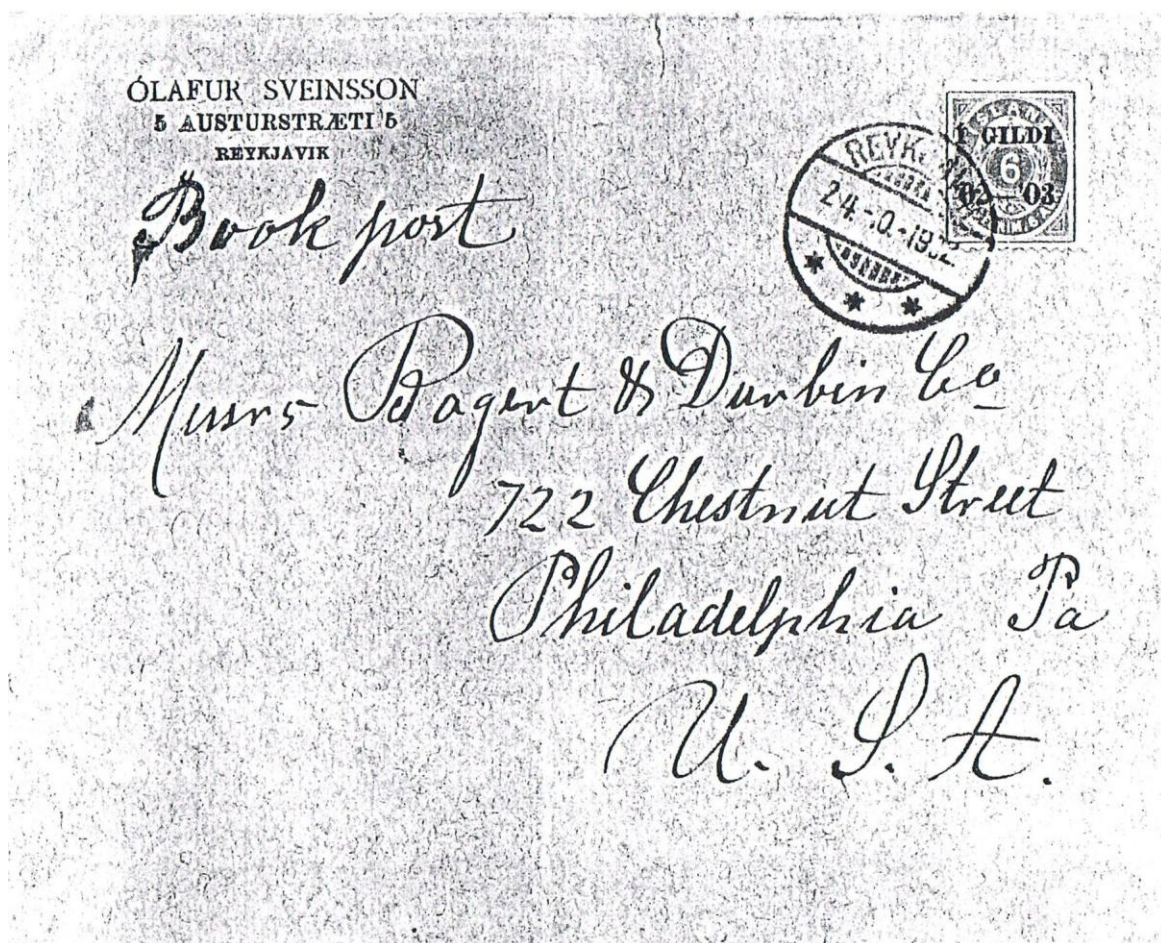 ÓLAFUR SVEINSSON
5 AUSTURSTRÆTI 5
REYKJAVIK
Book post
Í GILDI
6
'02 – '03
REYK
24.-0.-19
Messrs Bogert & Durbin Co
722 Chestnut Street
Philadelphia Pa
U. S. A.